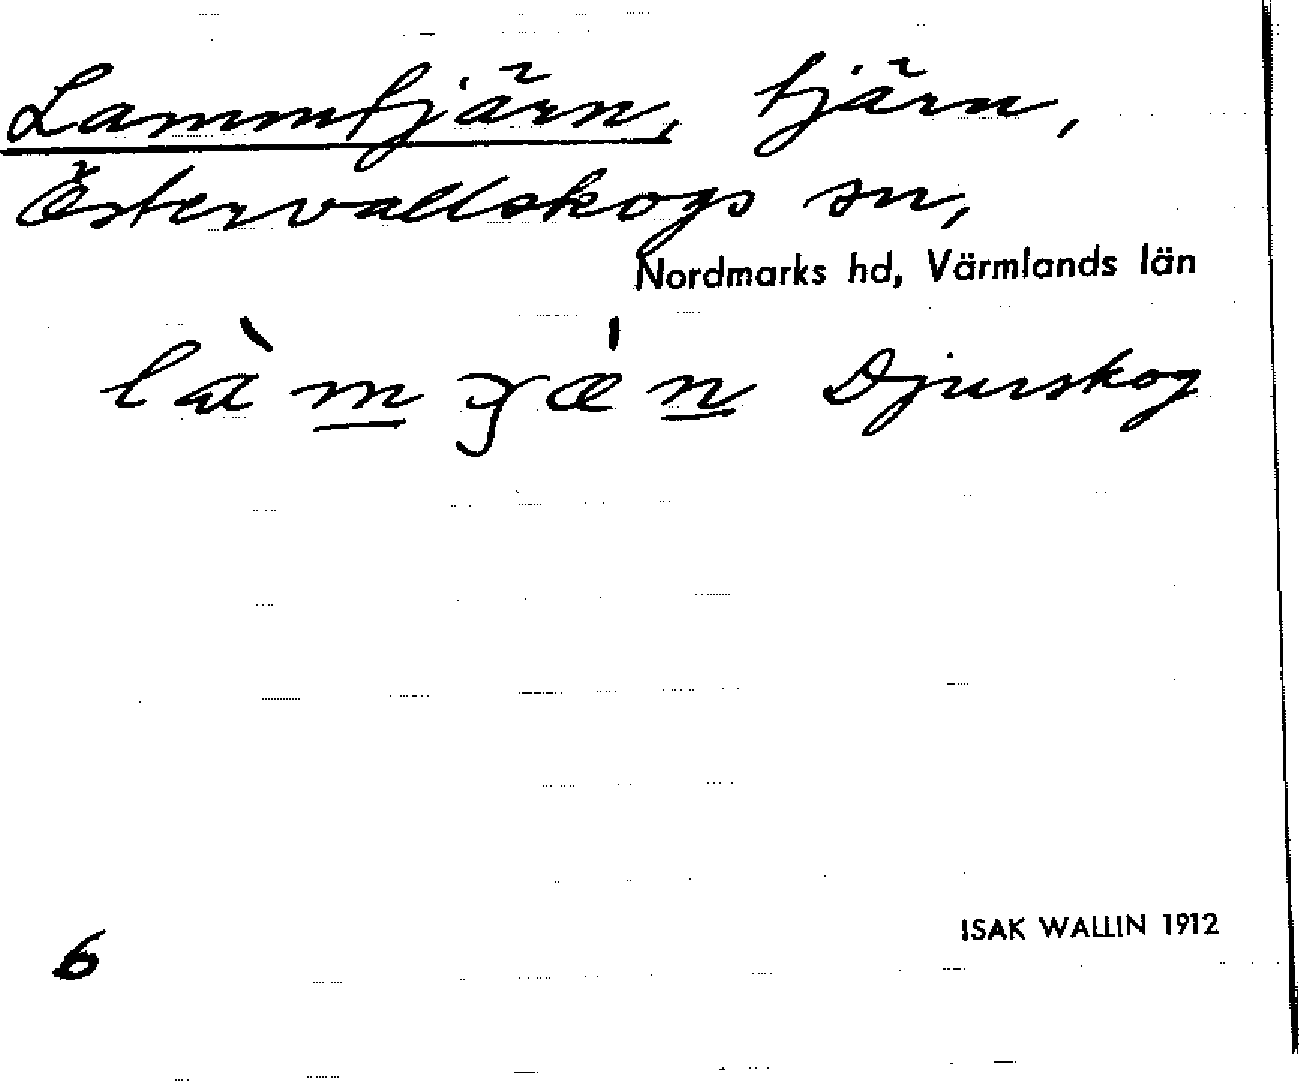 Lammtjärn, tjärn,
Östervallskogs sn,
Nordmarks hd, Värmlands län
Djurskog
ISAK WALLIN 1912
6